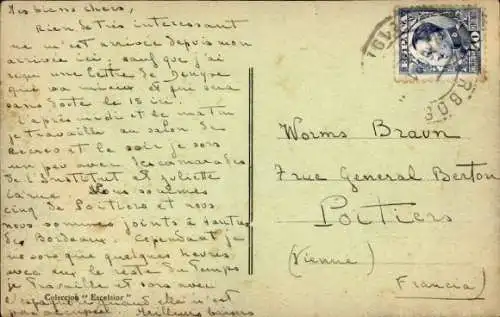 Mes biens chers,
Rien de très intéressant
ne m'est arrivée depuis mon
arrivée ici, sauf que j'ai
reçu une lettre de Denyse
qui va mieux et que sera
sans doute le 15 ici.
L'après midi et le matin
je travaille au salon de
et le soir je sors
un peu avec des camarades
de l'Institut et Juliette
Nous sommes
cinq de Poitiers et nous
nous sommes joints à
de Bordeaux. Cependant je
ne sors que quelques heures
avec eux le reste du temps
je travaille et sors avec
quand elle n'est
pas occupée. Meilleurs baisers
Coleccion "Excelsior"
ESPAÑA
40
Worms Braun
7 rue General Berton
Poitiers
(Vienne)
Francia)